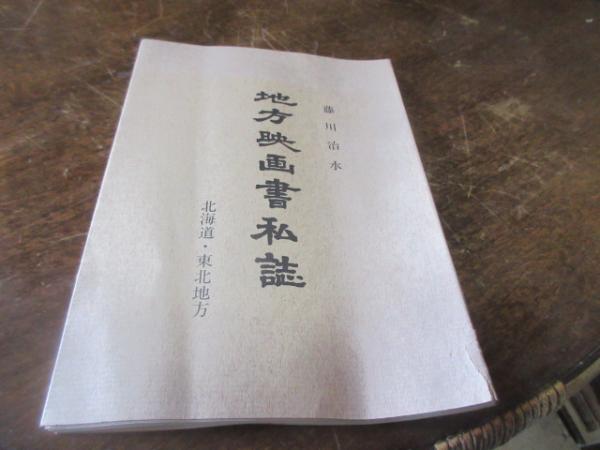 藤川治水
地方映画書私誌
北海道・東北地方